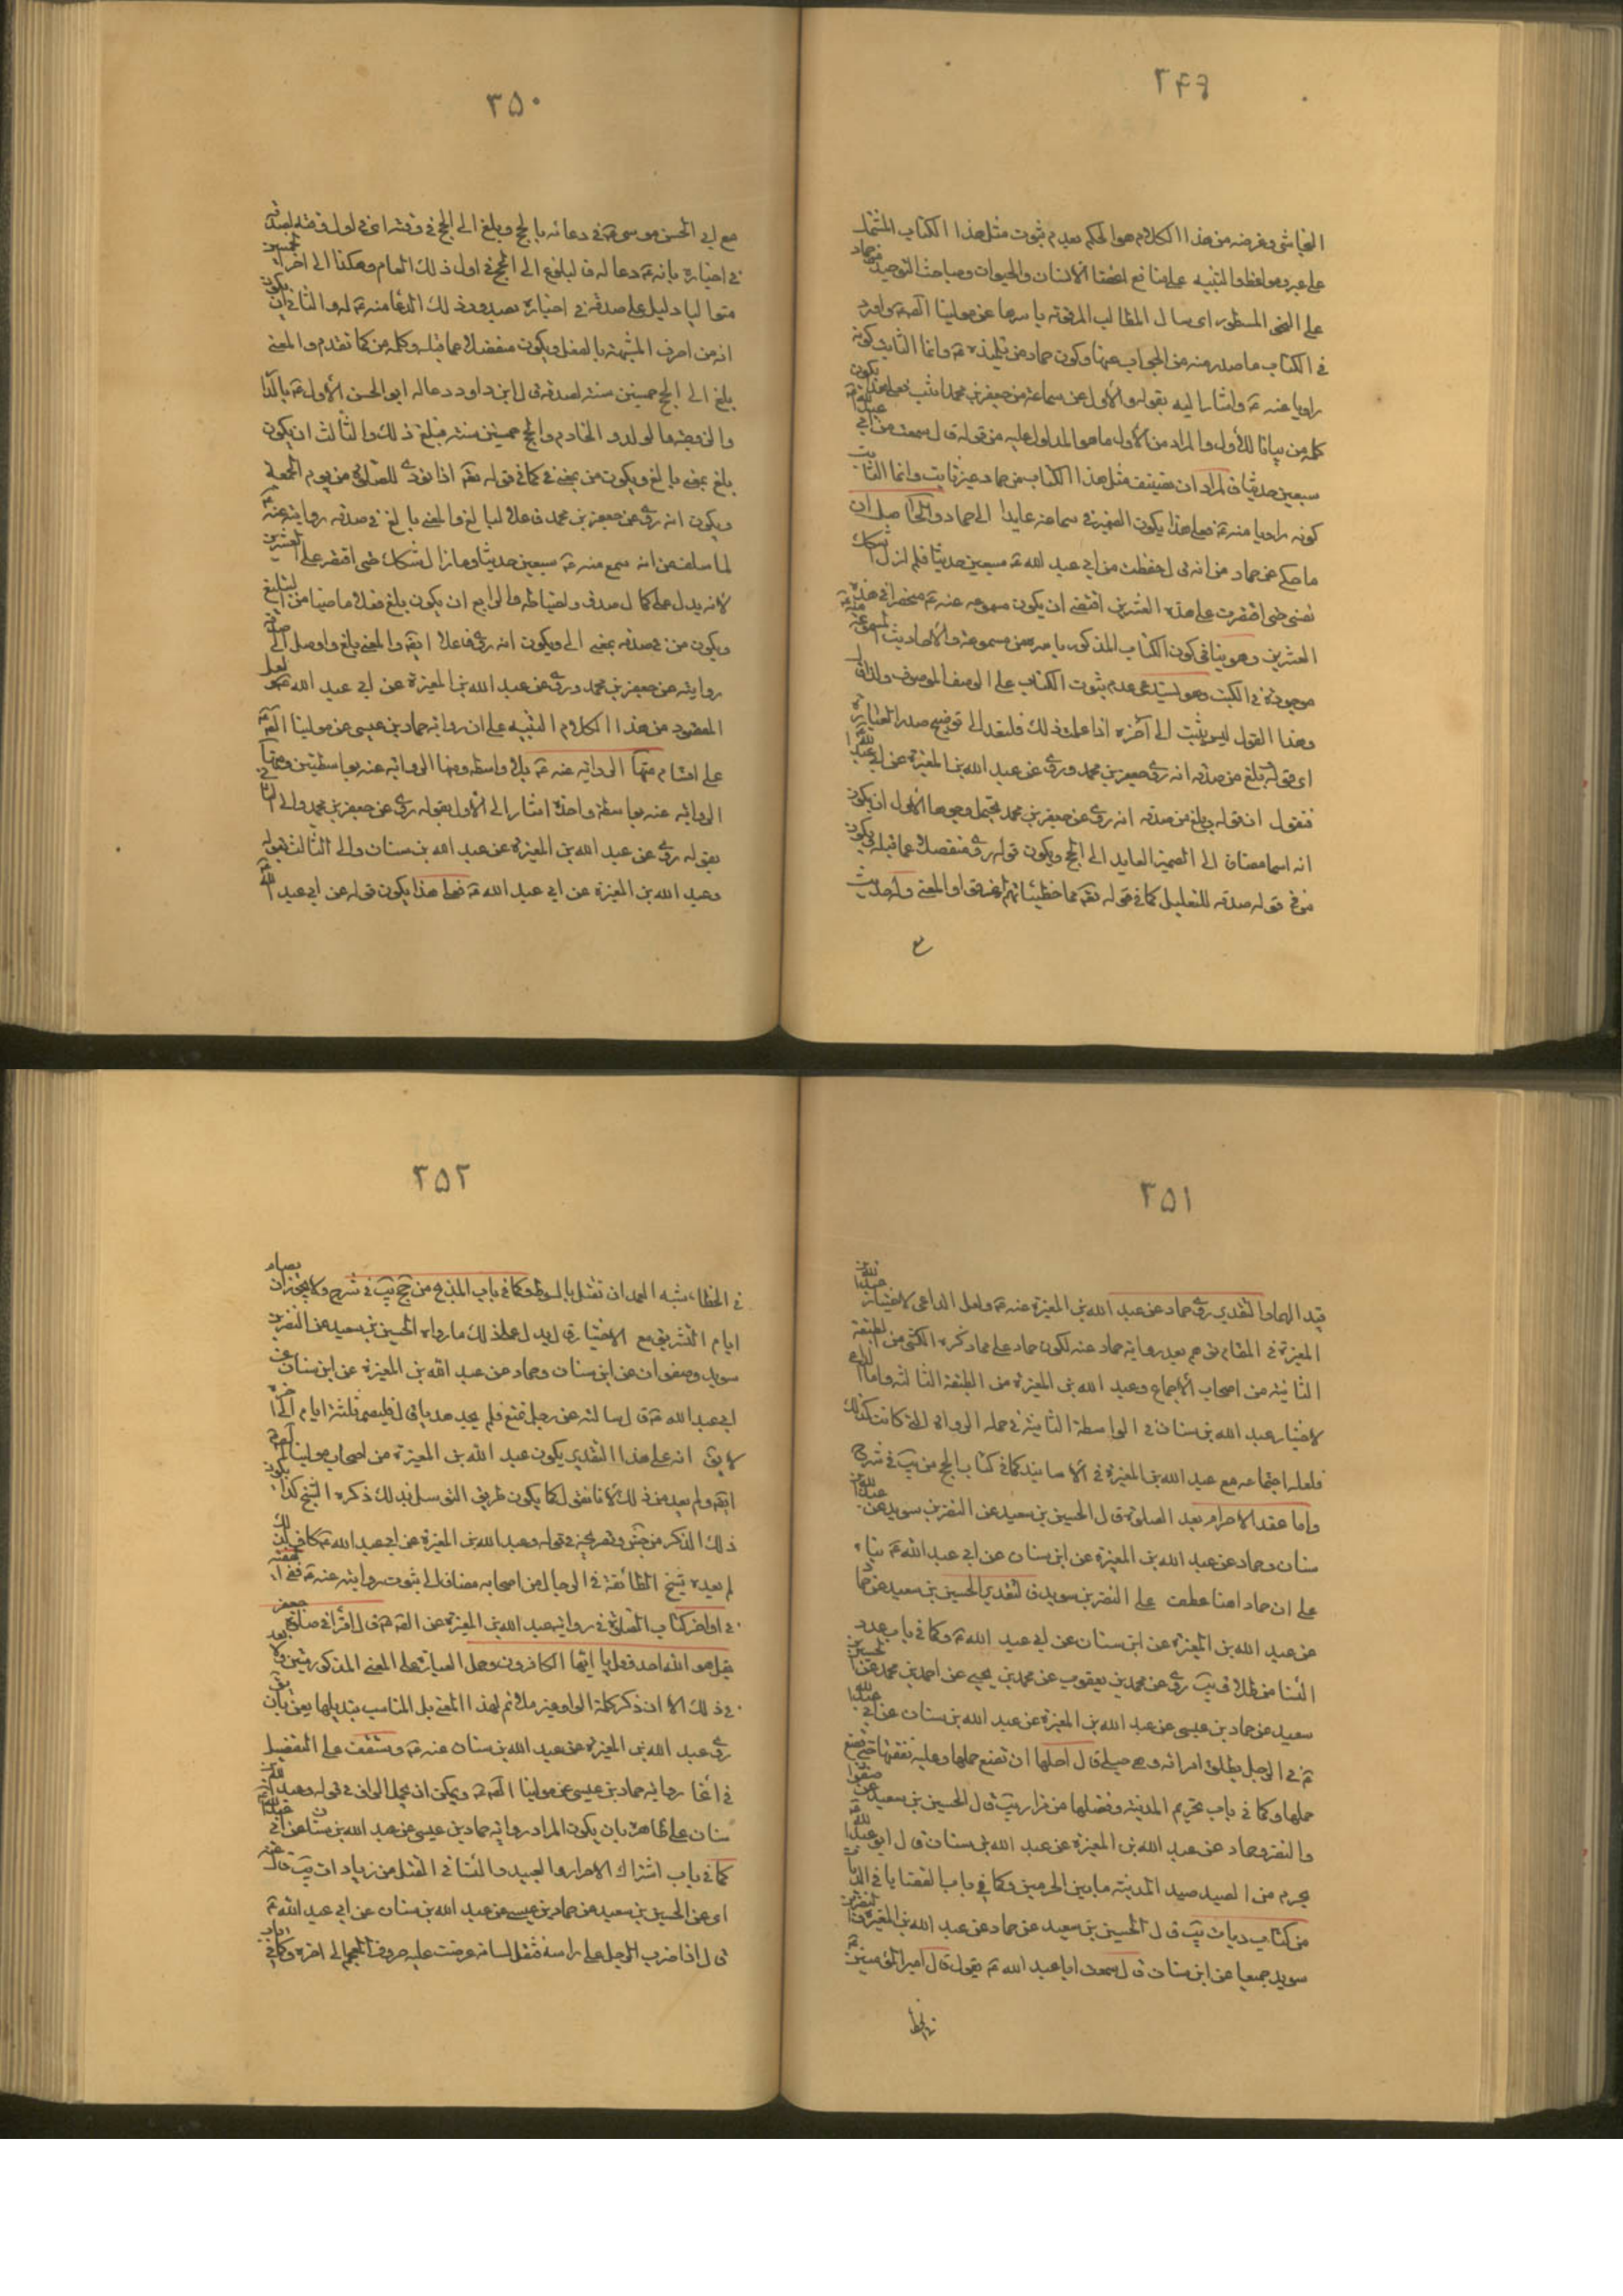 ٣٤٩
النجاشي وغرضه من هذا الكلام هو الحكم بعدم ثبوت مثل هذا الكتاب المشتمل
على عبر ومواعظ والتنبيه على منافع اعضاء الانسان والحيوان ومباحث التوحيد من حماد
على النحو المسطور اي سال المطالب المرقومة باسرها عن مولينا الصادق ع واورد
في الكتاب ما صدر منه من الجواب عنها وكون حماد من تلميذه ع وانما الثابت كونه
راويا عنه ع واشار اليه بقوله والاول من سماعه من جعفر بن محمد اثبت فعلى هذا يكون
كلمة من بيانا للاول والمراد من الاول ما هو المدلول عليه من قوله قال سمعت من ابي عبد الله ع
سبعين حديثا فالمراد ان تصنيف مثل هذا الكتاب من حماد غير ثابت وانما الثابت
كونه راويا منه ع فعلى هذا يكون الضمير في سماعه عايدا الى حماد والحاصل ان
ما حكي عن حماد من انه قال حفظت من ابي عبد الله ع سبعين حديثا فلم ازل اشكك
نفسي حتى اقتصرت على هذه العشرين اقتضى ان يكون مسموعه عنه ع منحصرا في هذه
العشرين وهو ينافي كون الكتاب المذكور باسره من مسموعه والاحاديث المسموعة منه ع
موجودة في الكتب وهو يستدعي عدم ثبوت الكتاب على الوصف الموصوف ولذا قال
وهذا القول ليس بثبت الى آخره اذا علمت ذلك فلنعد الى توضيح صدر العبارة
اي قوله بلغ من صدقه انه روى عن جعفر بن محمد وروى عن عبد الله بن المغيرة عن ابي عبد الله
فنقول ان قوله بلغ من صدقه انه روى عن جعفر بن محمد يحتمل وجوها الاول ان يكون
انه اسما مضافا الى الضمير العايد الى الحج ويكون قوله روى منفصلا عما قبله ويكون
من في قوله صدقه للتعليل كما في قوله تعالى مما خطيئاتهم اغرقوا والمعنى واحديث
ع
٣٥٠
مع ابي الحسن موسى ع في دعائه بالحج وبلغ الى الحج في وقت اخر في اول وقته لصدقه
في اخباره بانه ع دعا له فالبلوغ الى الحج في اول ذلك العام وهكذا الى آخر الخمسين
متواليا دليل على صدقه في اخباره بصدور ذلك الدعاء منه ع له والثاني ان يكون
انه من احرف المشبهة بالفعل ويكون منفصلا عما قبله وكلمة من كما تقدم والمعنى
بلغ الى الحج خمسين سنة لصدقه قال ابن داود دعا له ابو الحسن الاول ع بالدار
والزوجة والولد والخادم والحج خمسين سنة فبلغ ذلك والثالث ان يكون
بلغ بمعنى بالغ ويكون من بمعنى في كما في قوله تعالى اذا نودي للصلوة من يوم الجمعة
ويكون انه روى عن جعفر بن محمد فاعلا لبالغ والمعنى بالغ في صدقه روايته عنه ع
لما سلف من انه سمع منه ع سبعين حديثا وما زال شكك حتى اقتصر على العشرين
لانه يدل على كمال صدقه واحتياطه والرابع ان يكون بلغ فعلا ماضيا من التبليغ
ويكون من في صدقه بمعنى الى ويكون انه روى فاعلا ايضا والمعنى بلغ واوصل الى صدقه
روايته عن جعفر بن محمد وروى عن عبد الله بن المغيرة عن ابي عبد الله ع لعل
المقصود من هذا الكلام التنبيه على ان رواية حماد بن عيسى عن مولينا الصادق ع
على اقسام منها الرواية عنه ع بلا واسطة ومنها الرواية عنه بواسطتين ومنها
الرواية عنه بواسطة واحدة اشار الى الاول بقوله روى عن جعفر بن محمد والى الثاني
بقوله روى عن عبد الله بن المغيرة عن عبد الله بن سنان والى الثالث بقوله
وعبد الله بن المغيرة عن ابي عبد الله ع فعلى هذا يكون قوله عن ابي عبد الله ع
٣٥١
قيد الهما والتقدير روى حماد عن عبد الله بن المغيرة عنه ع ولعل الداعي لاختيار عبد الله بن
المغيرة في المقام بعد رواية حماد عنه لكون حماد على ما ذكره الكشي من الطبقة
الثانية من اصحاب الاجماع وعبد الله بن المغيرة من الطبقة الثالثة واما الداعي
لاختيار عبد الله بن سنان في الواسطة الثانية في جملة الرواة التي كانت كذلك
فلعله اجتماعه مع عبد الله بن المغيرة في الاسانيد كما في كتاب الحج من يب في شرح
واما عقد الاحرام بعد الصلوة قال الحسين بن سعيد عن النضر بن سويد عن عبد الله بن
سنان وحماد عن عبد الله بن المغيرة عن ابن سنان عن ابي عبد الله ع بناء
على ان حماد هنا عطف على النضر بن سويد فالتقدير الحسين بن سعيد عن حماد
عن عبد الله بن المغيرة عن ابن سنان عن ابي عبد الله ع وكما في باب عدد
النساء من طلاق يب روى عن محمد بن يعقوب عن محمد بن يحيى عن احمد بن محمد عن الحسين بن
سعيد عن حماد بن عيسى عن عبد الله بن المغيرة عن عبد الله بن سنان عن ابي عبد الله
ع في الرجل يطلق امراته وهي حبلى قال اجلها ان تضع حملها وعليه نفقتها حتى تضع
حملها وكما في باب تحريم المدينة وفضلها من مزار يب قال الحسين بن سعيد عن صفوان
والنضر وحماد عن عبد الله بن المغيرة عن عبد الله بن سنان قال قال ابو عبد الله ع
يحرم من الصيد صيد المدينة ما بين الحرمين وكما في باب القضايا في الديات
من كتاب ديات يب قال الحسين بن سعيد عن حماد عن عبد الله بن المغيرة والنضر بن
سويد جميعا عن ابن سنان قال سمعت ابا عبد الله ع يقول قال امير المؤمنين ع
في الخطا
٣٥٢
في الخطاء شبه العمد ان تقتل بالسوط وكما في باب الذبح من حج يب في شرح ولا يجوز ان يصام
ايام التشريق مع الاختيار قال يدل على ذلك ما رواه الحسين بن سعيد عن النضر بن
سويد وصفوان عن ابن سنان وحماد عن عبد الله بن المغيرة عن ابن سنان عن
ابي عبد الله ع قال سالته عن رجل تمتع فلم يجد هديا قال فليصم ثلثة ايام الى آخره
لا يق انه على هذا التقدير يكون عبد الله بن المغيرة من اصحاب مولينا الصادق ع
ايضا ولم يعد من ذلك لانا نقول كما يكون طريق التوسل بذلك ذكره الشيخ كذا يكون
ذلك الذكر من جش وتصريحه في قوله وعبد الله بن المغيرة عن ابي عبد الله ع كاف لذلك
لم يعده شيخ الطائفة في الرجال من اصحابه مضافا الى ثبوت روايته عنه ع ففي الفقيه
في اواخر كتاب الصلوة في رواية عبد الله بن المغيرة عن الصادق ع قال اقرا في صلوة جعفر
بقل هو الله احد وقل يا ايها الكافرون وحمل العبارة على المعنى المذكور متين ولا بعد
في ذلك الا ان ذكر كلمة الواو غير ملائم لهذا المعنى بل المناسب تبديلها بعن بان يق
روى عبد الله بن المغيرة عن عبد الله بن سنان عنه ع وستقف على التفصيل
في انحاء رواية حماد بن عيسى عن مولينا الصادق ع ويمكن ان يحمل الواو في قوله وعبد الله بن
سنان على ظاهره بان يكون المراد رواية حماد بن عيسى عن عبد الله بن سنان عن ابي عبد الله ع
كما في باب اشتراك الاحرار والعبيد والنساء في القتل من زيادات يب قال عنه
اي عن الحسين بن سعيد عن حماد بن عيسى عن عبد الله بن سنان عن ابي عبد الله ع
قال اذا ضرب الرجل على راسه فثقل لسانه عرضت عليه حروف المعجم الى آخره وكما في باب